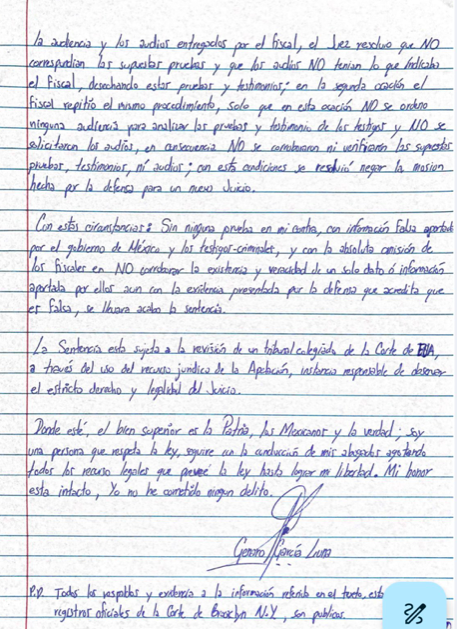 la audiencia y los audios entregados por el fiscal, el Juez resolvio que NO
correspondian las supuestas pruebas y que los audios NO tenian lo que indicaba
el Fiscal, desechando estas pruebas y testimonios; en la segunda ocasión el
Fiscal repitió el mismo procedimiento, solo que en esta ocasión NO se ordeno
ninguna audiencia para analizar las pruebas y testimonio de los testigos y NO se
solicitaron los audios, en consecuencia NO se corroboraron ni verificaron las supuestas
pruebas, testimonios, ni audios; con estas condiciones se resolvió negar la mosion
hecha por la defensa para un nuevo Juicio.
Con estas circunstancias: Sin ninguna prueba en mi contra, con información falsa aportada
por el gobierno de México y los testigos-criminales, y con la absoluta omisión de
los fiscales en NO corroborar la existencia y veracidad de un solo dato ó información
aportada por ellos aun con la evidencia presentada por la defensa que acredita que
es falsa, se llvara acabo la sentencia.
La Sentencia esta sujeta a la revisión de un tribunal colegiado de la Corte de EUA,
a través del uso del recurso juridico de la Apelación, instancia responsable de
el estricto derecho y legalidad del Juicio.
Donde esté, el bien superior es la Patria, los Mexicanos y la verdad; soy
una persona que respeta la ley, seguire con la conducción de mis abogados agotando
todos los recurso legales que preveé la ley hasta lograr mi libertad. Mi honor
esta intacto, Yo no he cometido ningun delito.
Genaro García Luna
P.D. Todos los respaldos y evidencia a la información referida en el texto, esta
registros oficiales de la Corte de Brooklyn N.Y., son publicos.